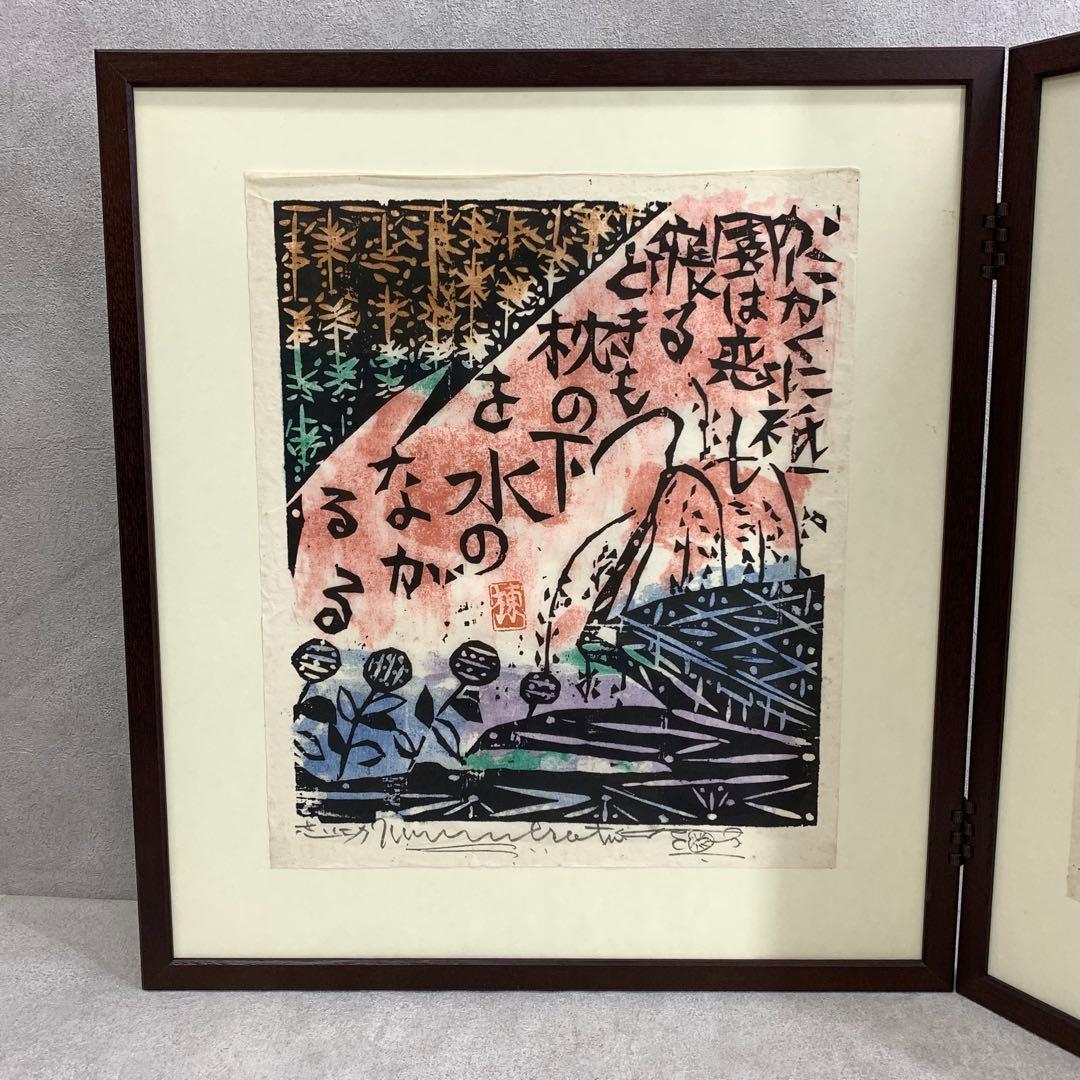 かにかくに祇
園は恋し
寐る
ときも
枕の下
を水の
なが
るる
棟